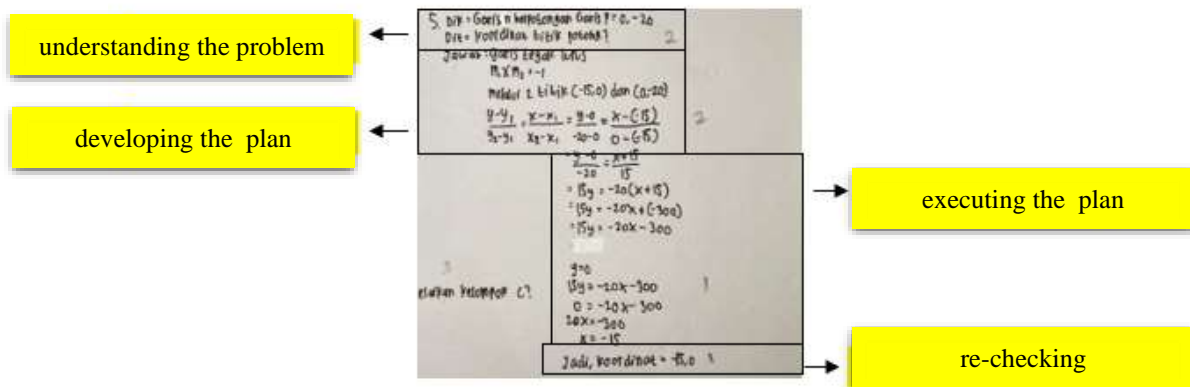 understanding the problem
developing the plan
executing the plan
re-checking
5. Dik = Garis n berpotongan Garis Y = 0, -20
Dit = koordinat titik potong? 2
Jawab : Garis tegak lurus
m₁ x m₂ = -1
melalui 2 titik (-15,0) dan (0,-20)
y-y₁/y₂-y₁ = x-x₁/x₂-x₁ = y-0/-20-0 = x-(-15)/0-(-15) 2
= y-0/-20 = x+15/15
= 15y = -20(x+15)
= 15y = -20x+(-300)
= 15y = -20x-300
y=0
15y = -20x-300 1
0 = -20x-300
20x = -300
x = -15
Jadi, koordinat = -15,0 1
3
kelompok C?